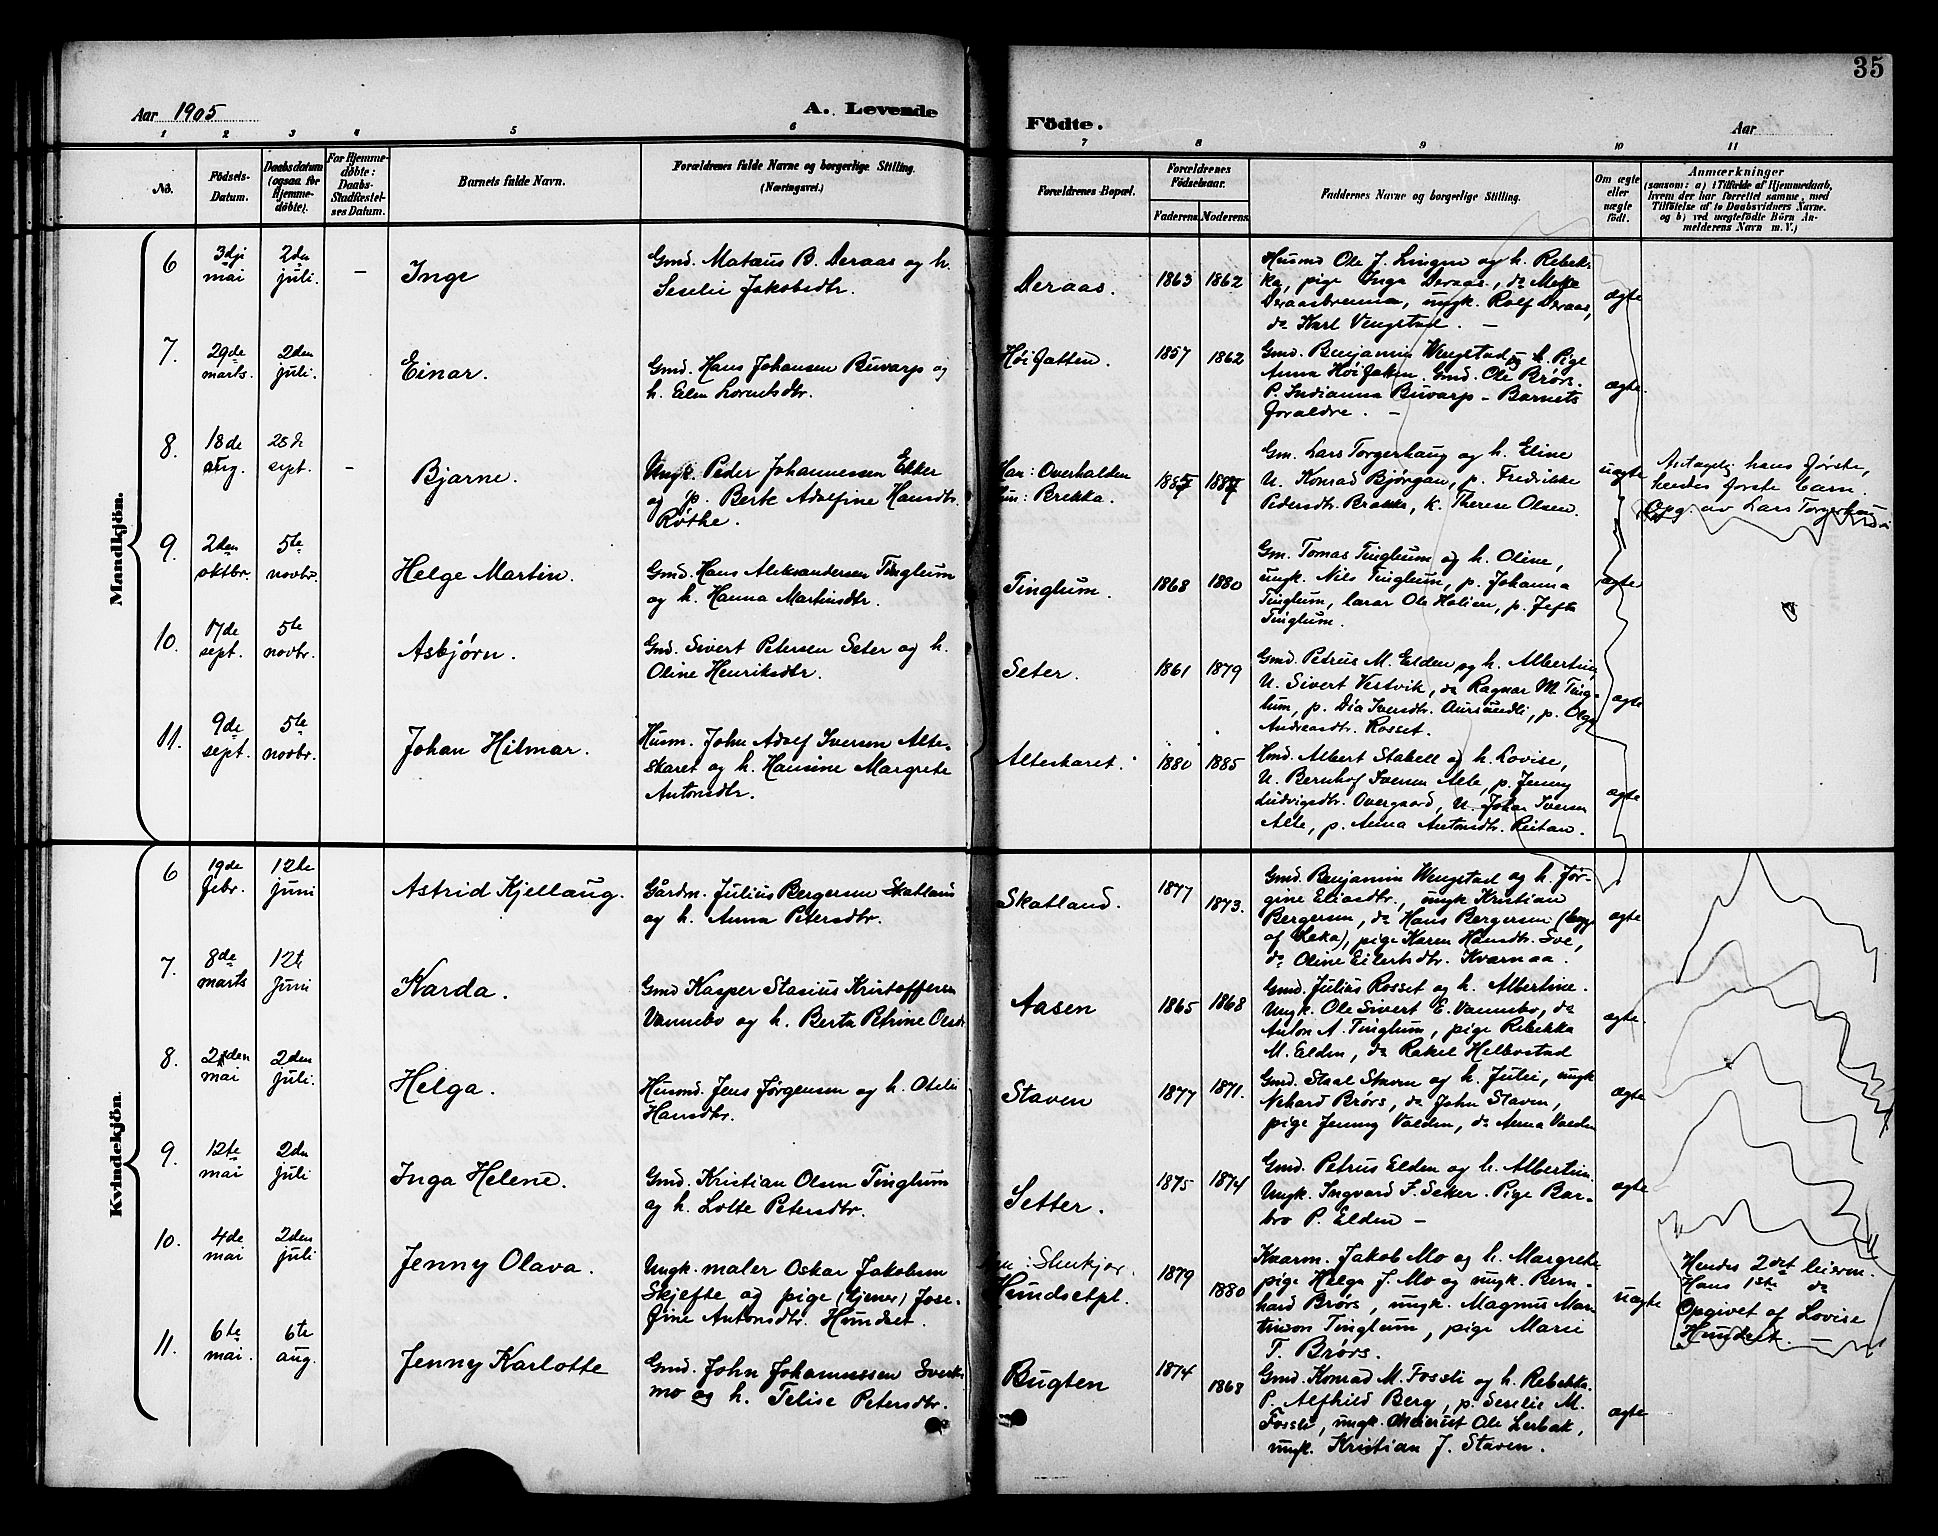 35
Aar 1905
A. Levende Födte.
Aar
1 2 3 4 5 6 7 8 9 10 11
No.
Födsels-Datum.
Daabsdatum (ogsaa for Hjemmedöbte).
For Hjemmedöbte: Daabs-Stadfæstelses Datum.
Barnets fulde Navn.
Forældrenes fulde Navne og borgerlige Stilling.
(Næringsvei.)
Forældrenes Bopæl.
Forældrenes Födselsaar.
Faderens Moderens
Faddernes Navne og borgerlige Stilling.
Om ægte eller uægte födt.
Anmærkninger
(saasom: a) i Tilfælde af Hjemmedaab, hvem der har forrettet samme, med Tilföielse af to Daabsvidners Navne. og b) ved uægtefödte Börn Anmelderens Navn m. V.)
Mandkjön.
6 3dje mai 2den juli. – Inge
Gmd. Mataus B. Deraas og h.
Seselie Jakobsdtr.
Deraas. 1863 1862
Husmd Ole J. Lingen og h. Rebek-
ka, pige Inga Deraas, do Mette
Deraasbrenna, ungk. Rolf Deraas,
do Karl Vengstad. –
ægte
7. 29de marts. 2den juli. Einar.
Gmd. Hans Johansen Buvarp og
h. Elen Lorentsdtr.
Høifatten. 1857 1862
Gmd. Benjamin Vengstad og h. Pige
Anna Høifatten Gmd. Ole Brørs.
P. Indianna Buvarp – Barnets
foraldre. –
ægte.
8. 18de aug. 28de sept. – Bjarne.
Ungk. Peder Johannessen Ekker
og p. Berte Adolfine Hansdtr.
Røthe.
Han: Overhalden
Hun: Brekka.
Gm. Lars Torgerhaug og h. Eline
U. Konrad Bjørgan, p. Fredrikke
Pedersdtr. Brakka, k. Therese Olsen.
uægte
Antagelig hans første,
hendes første barn.
Opg. av Lars Torgerhau
9. 2den oktbr. 5te novbr. Helge Martin.
Gmd. Hans Aleksandersen Tinglum
og h. Hanna Martinsdtr.
Tinglum. 1868 1880
Gm. Tomas Tinglum og h. Oline,
ungk. Nils Tinglum, p. Johanna
Tinglum, lærer Ole Holien, p. Jefta
Tinglum.
ægte
10. 17de sept. 5te novbr. Asbjørn.
Gmd. Sivert Petersen Seter og h.
Oline Henriksdtr.
Seter. 1861 1879
Gmd. Petrus M. Elden og h. Albertine,
U. Sivert Vestvik, do Ragnar M. Ting-
lum, p. Dia Iversdtr. Aursandli, p. Olga
Andreasdtr. Rosset.
ægte
11. 9de sept. 5te novbr. Johan Hilmar.
Husm. John Adolf Iversen Alte-
skaret og h. Hansine Margrete
Antonsdtr.
Alteskaret. 1880 1885
Hmd. Albert Stabell og h. Lovise,
U. Bernhof Iversen Alte, p. Jenny
Ludvigsdtr. Overgaard, U. Johan Iversen
Alte, p. Anna Antonsdtr. Reitan.
ægte
Kvindekjön.
6 19de febr. 12te juni Astrid Kjellaug.
Gårdm. Julius Bergersen Skatland
og h. Anna Petersdtr.
Skatland. 1877 1873.
Gmd. Benjamin Vengstad og h. Jør-
gine Eliasdtr., ungk Kristian
Bergersen, do Hans Bergersen (begge
af Leka), pige Karen Hansdtr. Sve,
do Oline Eilertsdtr. Kvarnaa.
ægte
7. 8de marts 12te juni Karda.
Gmd Kasper Stasius Kristoffersen
Vannebo og h. Berta Petrine Olsdtr
Aasen 1865 1868
Gmd. Julius Rosset og h. Albertine.
Ungk. Ole Sivert E. Vannebo, do
Anton A. Tinglum, pige Rebekka
M. Elden, do Rakel Helbostad
ægte.
8. 2den mai 2den juli. Helga.
Husmd. Jens Jørgensen og h. Otelie
Hansdtr.
Staven 1877 1871.
Gmd. Staal Staven og h. Julie, ungk
Nekard Brørs, do John Staven,
pige Jenny Valden, do Anna Valden
ægte
9. 12te mai 2den juli Inga Helene.
Gmd. Kristian Olsen Tinglum
og h. Lotte Petersdtr.
Setter. 1875 1874
Gmd. Petrus Elden og h. Albertine.
Ungk. Ingvard F. Seker. Pige Bar-
bro P. Elden –
ægte
10. 4de mai 2den juli Jenny Olava.
Ungk. maler Oskar Jakobsen
Skjefte og pige (tjener) Jose-
fine Antonsdtr. Hundset.
Stenkjær.
Hundsetpl. 1879 1880
Kaarm. Jakob Mo og h. Margrete
pige Helga J. Mo og ungk. Bern-
hard Brørs, ungk. Magnus Mar-
tinson Tinglum, pige Marie
T. Brørs.
uægte
Hendes 2det leierm.
Hans 1ste do
Opgivet af Lovise
Hundset.
11. 6te mai. 6te aug. Jenny Karlotte
Gmd. John Johannessen Svenk-
mo og h. Telise Petersdtr.
Bugten 1874 1868
Gmd. Konrad M. Fossli og h. Rebekka.
P. Alfhild Berg, p. Serilie M.
Fossli, ungk. meierist Ole Lerbak,
ungk. Kristian J. Staven.
ægte